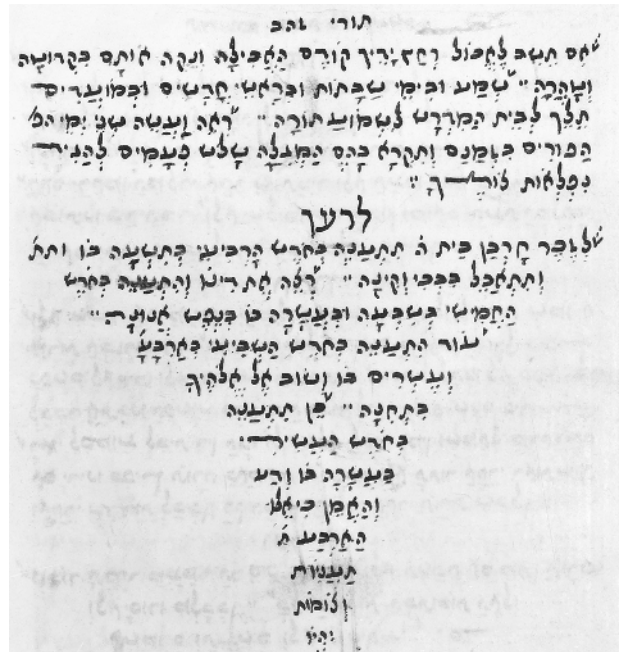 תורי זהב
אם תשב לאכול רחץ ידיך קודם האכילה ונקה אותם בקדושה
וטהרה שמע ובימי שבתות ובראשי חדשים ובמועדים
תלך לבית המדרש לשמוע תורה ראה ועשה שני ימי
הפורים בזמנם ותקרא בהם המגלה שלש פעמים
נפלאות
לרעך
לזכר חרבן בית ה תתענה בחדש הרביעי בתשעה בו
ותתאבל בבכי והתענה בחדש
החמישי בשבעה ובעשרה בו בנפש
עוד התענה בחדש השביעי בארבע
ועשרים בו ושוב אל אלהיך
בתחנה כן תתענה
בחדש העשירי
בעשרה בו ודע
והאמן כי אלו
הארבעה
תעניות
וצומות
יהיו